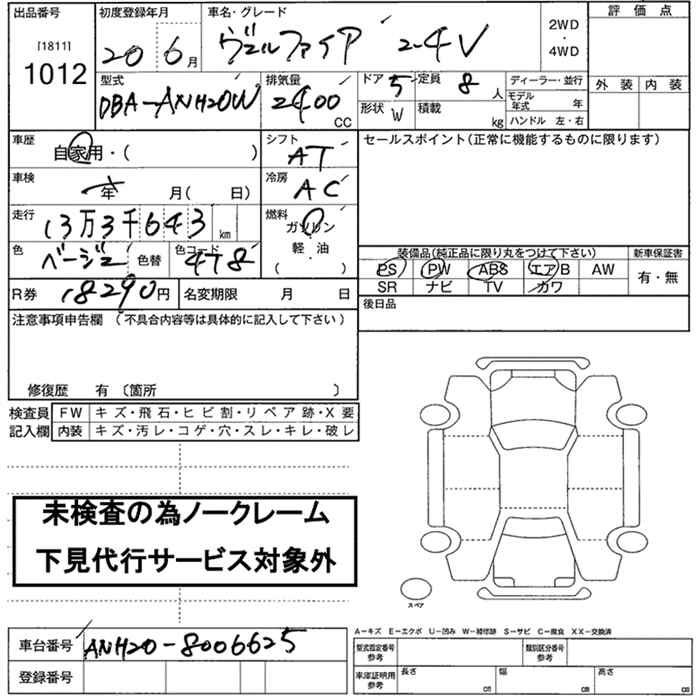 出品番号 初度登録年月 車名・グレード 2WD・4WD 評価点
[1811]
1012 20 6月 ヴェルファイア 2.4V
外装 内装
型式 排気量 ドア 5 定員 8人 ディーラー・並行
DBA-ANH20W 2400CC 形状 W 積載 kg モデル年式 年
ハンドル 左・右
車歴 自家用・( ) シフト AT セールスポイント(正常に機能するものに限ります)
車検 年 月( 日) 冷房 AC
走行 13万3千643km 燃料 ガソリン
軽・油
( )
色 ベージュ 色替 色コード 478
装備品(純正品に限り丸をつけて下さい) 新車保証書
PS PW ABS エアB AW 有・無
SR ナビ TV カワ
R券 18290円 名変期限 月 日
後日品
注意事項申告欄 (不具合内容等は具体的に記入して下さい)
修復歴 有 〔箇所 〕
検査員 FW キズ・飛石・ヒビ割・リペア跡・X要
記入欄 内装 キズ・汚レ・コゲ・穴・スレ・キレ・破レ
未検査の為ノークレーム
下見代行サービス対象外
スペア
車台番号 ANH20-8006625
登録番号
A-キズ E-エクボ U-凹み W-補修跡 S-サビ C-腐食 XX-交換済
型式指定番号 参考 類別区分番号 参考
車庫証明用 参考 長さ cm 幅 cm 高さ cm